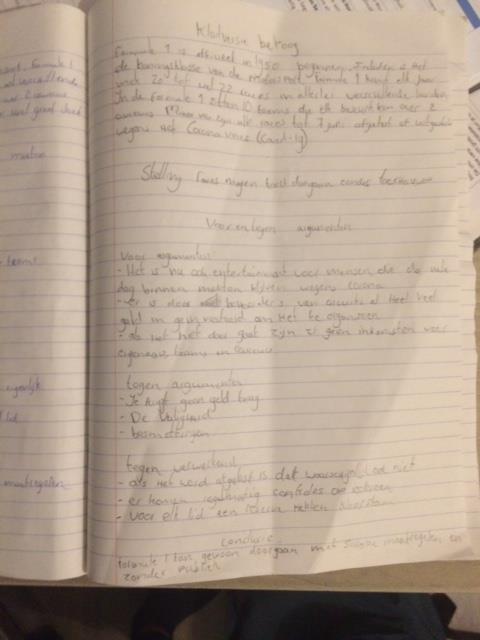 Kladversie betoog
Formule 1 is officieel in 1950 begonnen. Sindsdien is het
de koningsklasse van de motorsport. Formule 1 houd elk jaar
rond 20 tot wel 22 races in allerlei verschillende landen.
In de formule 1 zitten 10 teams die elk beschikken over 2
coureurs. Maar nu zijn alle races tot 7 juni afgelast of uitgesteld
wegens het Corona virus (Covid-19)
Stelling Races mogen toch doorgaan zonder toeschouwers
Voor en tegen argumenten
Voor argumenten
- Het is nu ook entertainment voor mensen die de hele
dag binnen moeten blijven wegens corona
- er is door beheerders van circuits al heel veel
geld in geïnvesteerd om het te organiseren
- als het niet door gaat zijn er geen inkomsten voor
eigenaars, teams en coureurs
tegen argumenten
- Je krijgt geen geld terug
- De veiligheid
- besmettingen
tegen
- als het word afgelast is dat waarschijnlijk ook niet
- er komen regelmatig controles
- voor elk lid een
conclusie
formule 1 kan gewoon doorgaan met maatregelen en
zonder publiek
eigenlijk
maatregelen